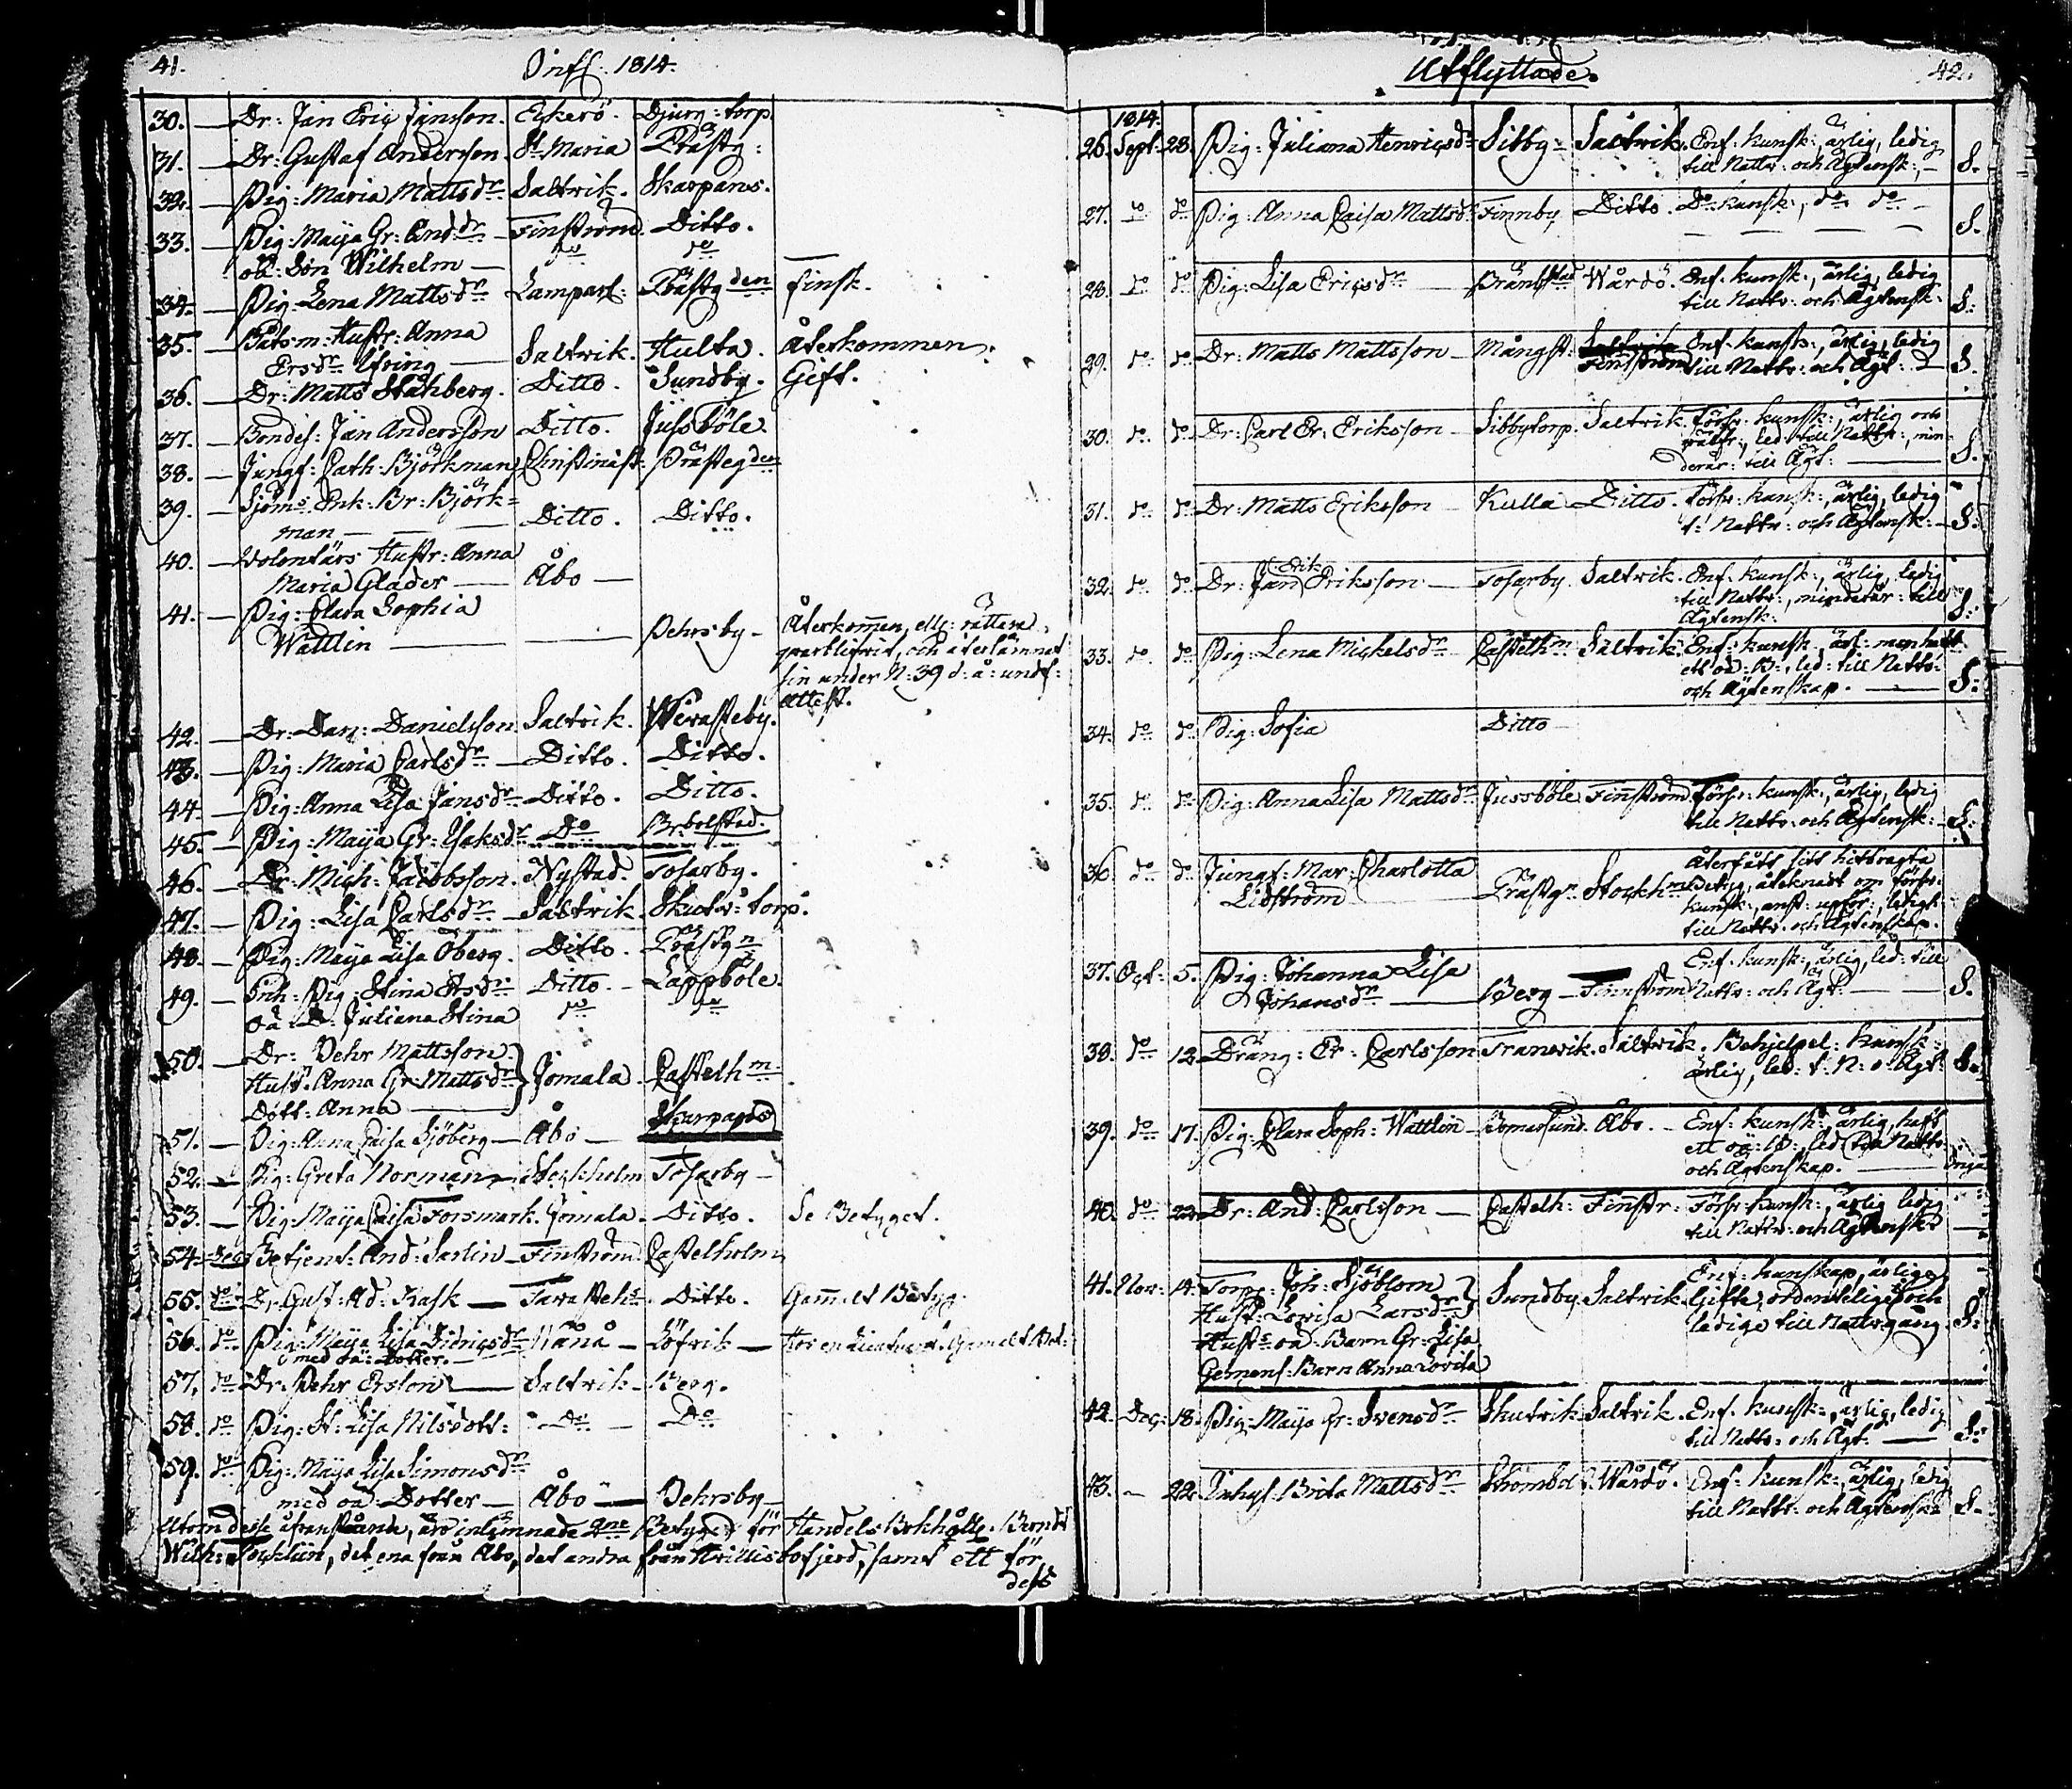 41. Infl. 1814.
30. — Dr: Jan Eric Jansson. Ekerö. Djurg:torp.
31. — Dr: Gustaf Andersson. St Maria Prästg:
32. — Pig: Maria Mattsdr Saltvik. Skarpans.
33. — Pig: Maija Gr: And:dr — Finström. Ditto.
oä: Son Wilhelm — do do
34. — Pig: Lena Mattsdr Lamparl: Prästgden finsk.
35. — Båtsm: Hustr: Anna
Ersdr Ifring — Saltvik. Hulta. Återkommen.
36. — Dr: Matts Ståhberg. Ditto. Sundby. Gift.
37. — Bondes: Jan Andersson Ditto. Jussböle.
38. — Jungf: Cath: Björkman Christinæst: Prästegden
39. — Sjöms Enk: Br: Björk=
man — Ditto. Ditto.
40. — Volontärs Hustr: Anna
Maria Glader — Åbo —
41. — Pig: Clara Sophia
Wattlin — — Pehrsby — Återkommen, ell: rättare,
qvarblifvit, och återlämnat
sin under N: 39 d: å: undf:
attest.
42. — Dr: Dan: Danielsson Saltvik. Werasteby.
43. — Pig: Maria Carlsdr — Ditto. Ditto.
44. — Pig: Anna Lisa Jansdr Ditto. Ditto.
45. — Pig: Maija Gr: Isaksdr Do Br:bolstad.
46. — Dr: Mich: Jacobsson. Nystad. Tosarby.
47. — Pig: Lisa Carlsdr — Saltvik. Skutv: torp.
48. — Pig: Maija Lisa Öberg. Ditto. Prästgn
49. — Enk: Pig: Stina Ersdr Ditto. — Lappböle.
oä D: Juliana Stina do do
50. — Dr: Pehr Mattsson.
Hust: Anna Gr: Mattsdr } Jomala. Castelhm
Dött: Anna —
51. — Pig: Anna Caisa Sjöberg — Åbo — Skarpans
52. — Pig: Greta Norman — Stockholm Tosarby —
53. — Pig: Maija Caisa Forsmark. Jomala. Ditto. Se Betyget.
54. — Betjent: And: Sarlin — Finström. Castelholm
55. do Dr: Gust: Ad: Kask — Tavastehs. Ditto. Gammalt Betyg.
56. do Pig: Maija Lisa — Löfvik —
med oä: Dotter. —
57. do Dr: Pehr Ersson — Saltvik — Berg.
58. do Pig: St: Lisa Nilsdott: — Do — Do
59. do Pig: Maija Lisa Simonsdr
med oä: Dotter — Åbo — Pehrsby —
Utom desse åfvanstående, äro inlemnade 2ne Betyg för Handels Bokhåll: Berndt
Wilh: , det ena från Åbo, det andra från , samt ett för
dess
Utflyttade. 42.
1814.
26. Sept. 28. Pig: Juliana Henricsdr Sibby — Saltvik. Enf: kunsk:, ärlig, ledig
till Nattv: och Ägtensk: — S.
27. do do Pig: Anna Caisa Mattsdr Finnby Ditto. Do kunsk:, do do — S.
28. do do Pig: Lisa Ericsdr — Brändbol Wårdö. Enf: kunsk:, ärlig, ledig
till Nattv: och Ägtensk: S:
29. do do Dr: Matts Mattsson — Mångst: Saltvik Enf: kunsk:, ärlig, ledig
Finström till Nattv: och Ägt: S.
30. do do Dr: Carl Er: Eriksson — Sibbytorp. Saltvik. Försv: kunsk:, ärlig och
rättfr:, led: till Nattv:, min=
derår: till Ägt: — S.
31. do do Dr: Matts Eriksson — Kulla Ditto. Försv: kunsk:, ärlig, ledig
t: Nattv: och Ägtensk: — S:
Erik
32. do do Dr: Jan Eriksson — Tosarby. Saltvik. Enf: kunsk:, ärlig, ledig
till Nattv:, minderår: till
Ägtensk: S:
33. do do Pig: Lena Mickelsdr Castelhm Saltvik: Enf: kunsk:, ärl: men haft
ett oä: B:, led: till Nattv:
och Ägtenskap. — S:
34. do do Pig: Sofia Ditto —
35. do do Pig: Anna Lisa Mattsdr Jussböle Finström Försv: kunsk:, ärlig, ledig
till Nattv: och Ägtensk: — S:
36. do do Jungf: Mar: Charlotta Återfått sitt hitbragta
Lidström — Prästgn Stockhm Betyg, åteknadt om försv:
kunsk:, anst: upför:, ledigh:
till Nattv: och Ägtenskap.
37. Oct: 5. Pig: Johanna Lisa Enf: kunsk:, ärlig, led: till
Johansdr — Berg — Finnström Nattv: och Ägt: — S.
38. do 12. Dräng: Er: Carlsson Tranvik. Saltvik. Behjelpel: kunsk:
ärlig, led: t: N: o: Ägt: S.
39. do 17. Pig: Clara Soph: Wattlin — Bomarsund. Åbo. — Enf: kunsk:, ärlig, haft
ett oä: B:, led: till Nattv:
och Ägtenskap. —
40. do 22. Dr: And: Carlsson — Castelh: Finstr: Försv: kunsk:, ärlig, ledig
till Nattv: och Ägtensk: —
41. Nov: 14. Torp: Joh: Sjöblom } Enf: kunskap, ärlige,
Hust: Lovisa Larsdr Sundby. Saltvik. Gifte, ordentelige och
Husts oä: Barn Gr: Lisa ledige till Nattv:gång. S:
Gemens: Barn Anna Lovisa
42. Dec: 18. Pig: Maija Gr: Svensdr Skutvik Saltvik. Enf: kunsk:, ärlig, ledig
till Nattv: och Ägt: — S:
43. — 22. Inhys: Brita Mattsdr Strömbol: Wårdö. Enf: kunsk:, ärlig, ledig
till Nattv: och Ägtensk: S.